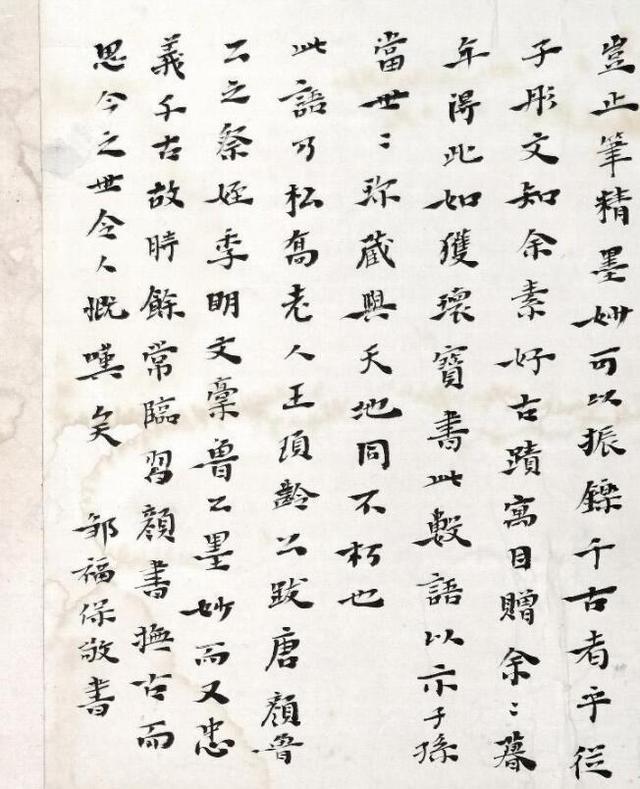 豈止筆精墨妙可以振鑠千古者乎從
子彤文知余素好古蹟寓目贈余〻暮
年得此如獲瓌寶書此數語以示子孫
當世〻珎藏與天地同不朽也
此語乃松喬老人王頊齡公跋唐顏魯
公之祭姪季明文稾魯公墨妙而又忠
義千古故時餘常臨習顏書撫古而
思今之世令人慨嘆矣 鄒福保敬書